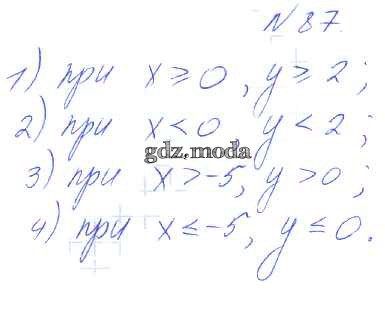 N 87.
1) при x ≥ 0, y ≥ 2;
2) при x < 0 y < 2;
gdz.moda
3) при x > -5, y > 0;
4) при x ≤ -5, y ≤ 0.